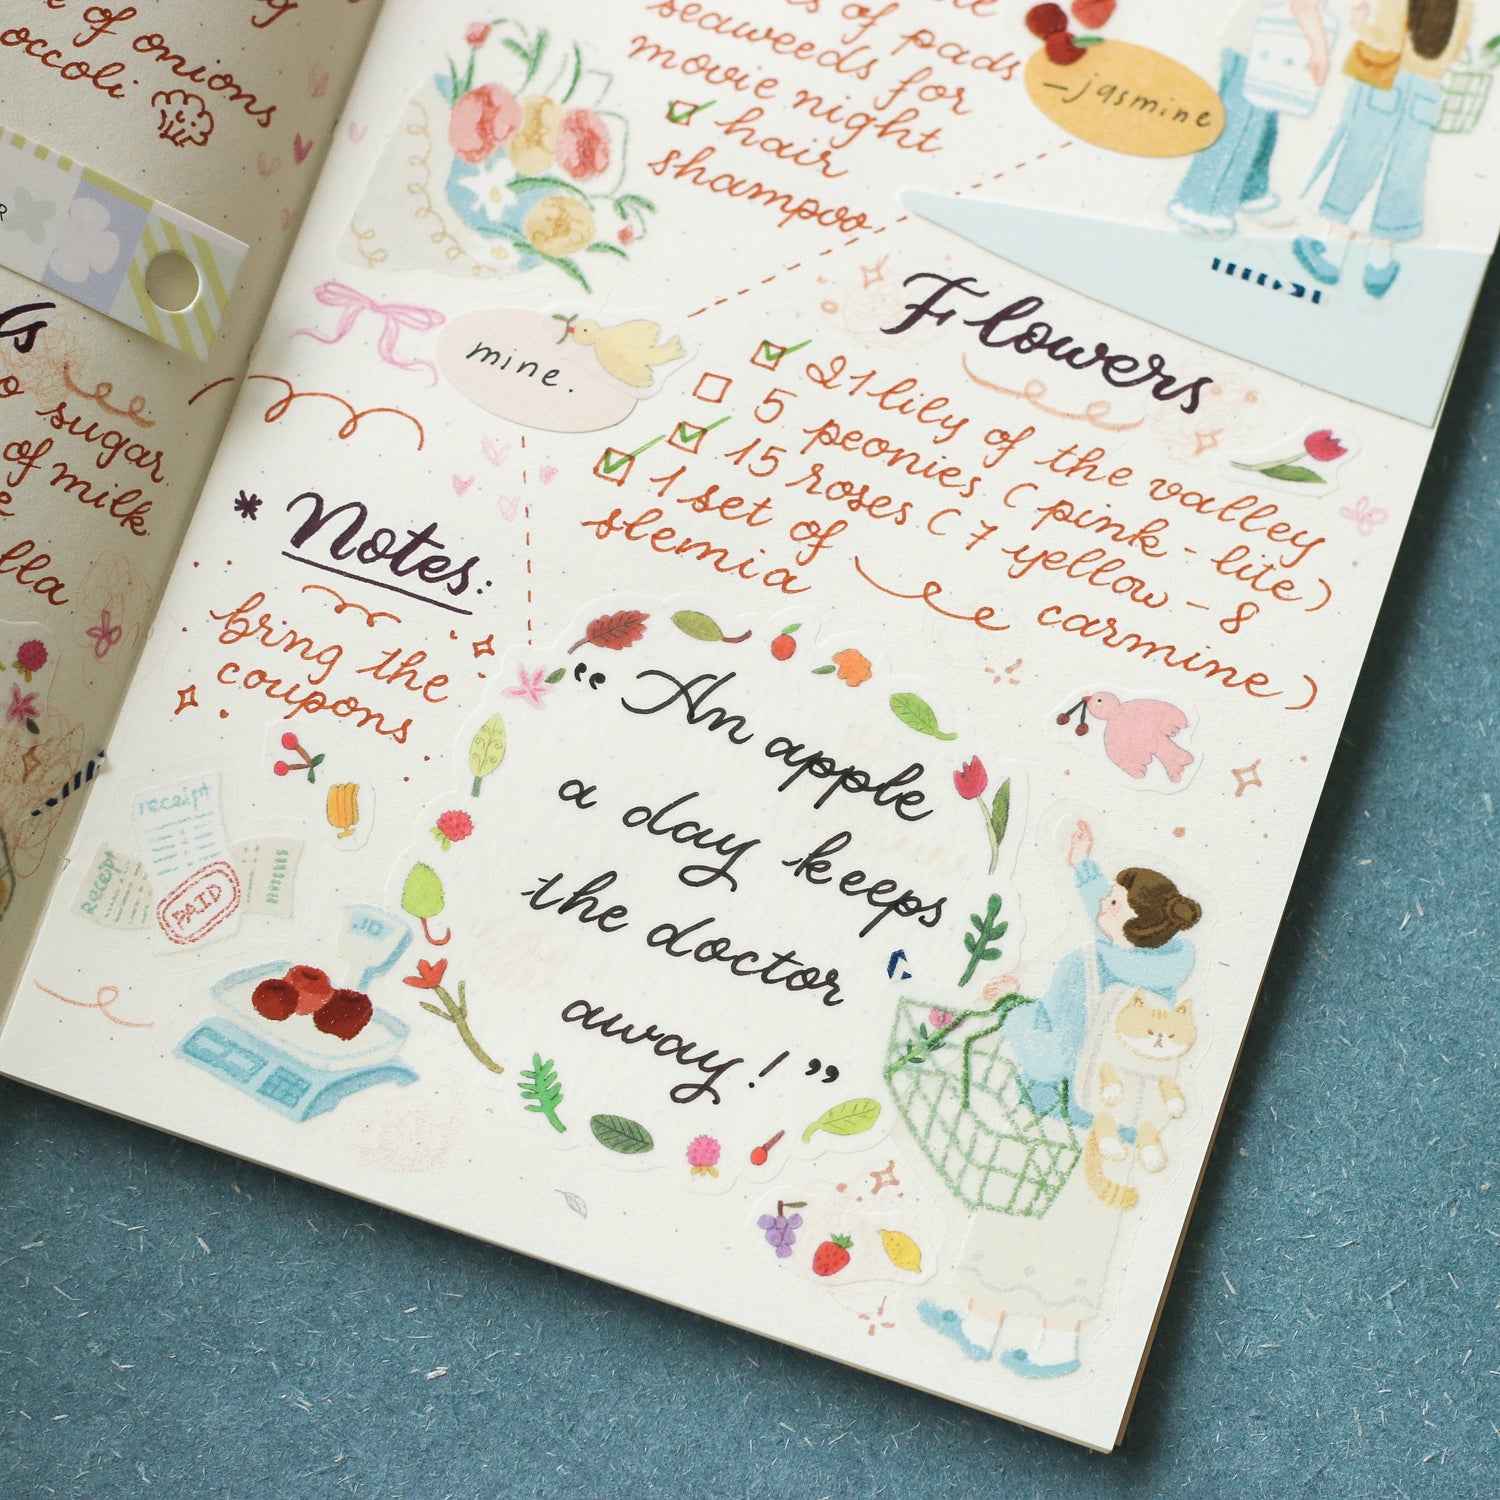 of onions
occoli
sugar
of milk
lla
of pads
seaweeds for
movie night
hair
shampoo,
–jasmine
mine.
Flowers
21 lily of the valley
5 peonies (pink - lite)
15 roses (7 yellow - 8
carmine)
1 set of
slemia
* Notes:
bring the
coupons
receipt
receipt
PAID
“An apple
a day keeps
the doctor
away!”